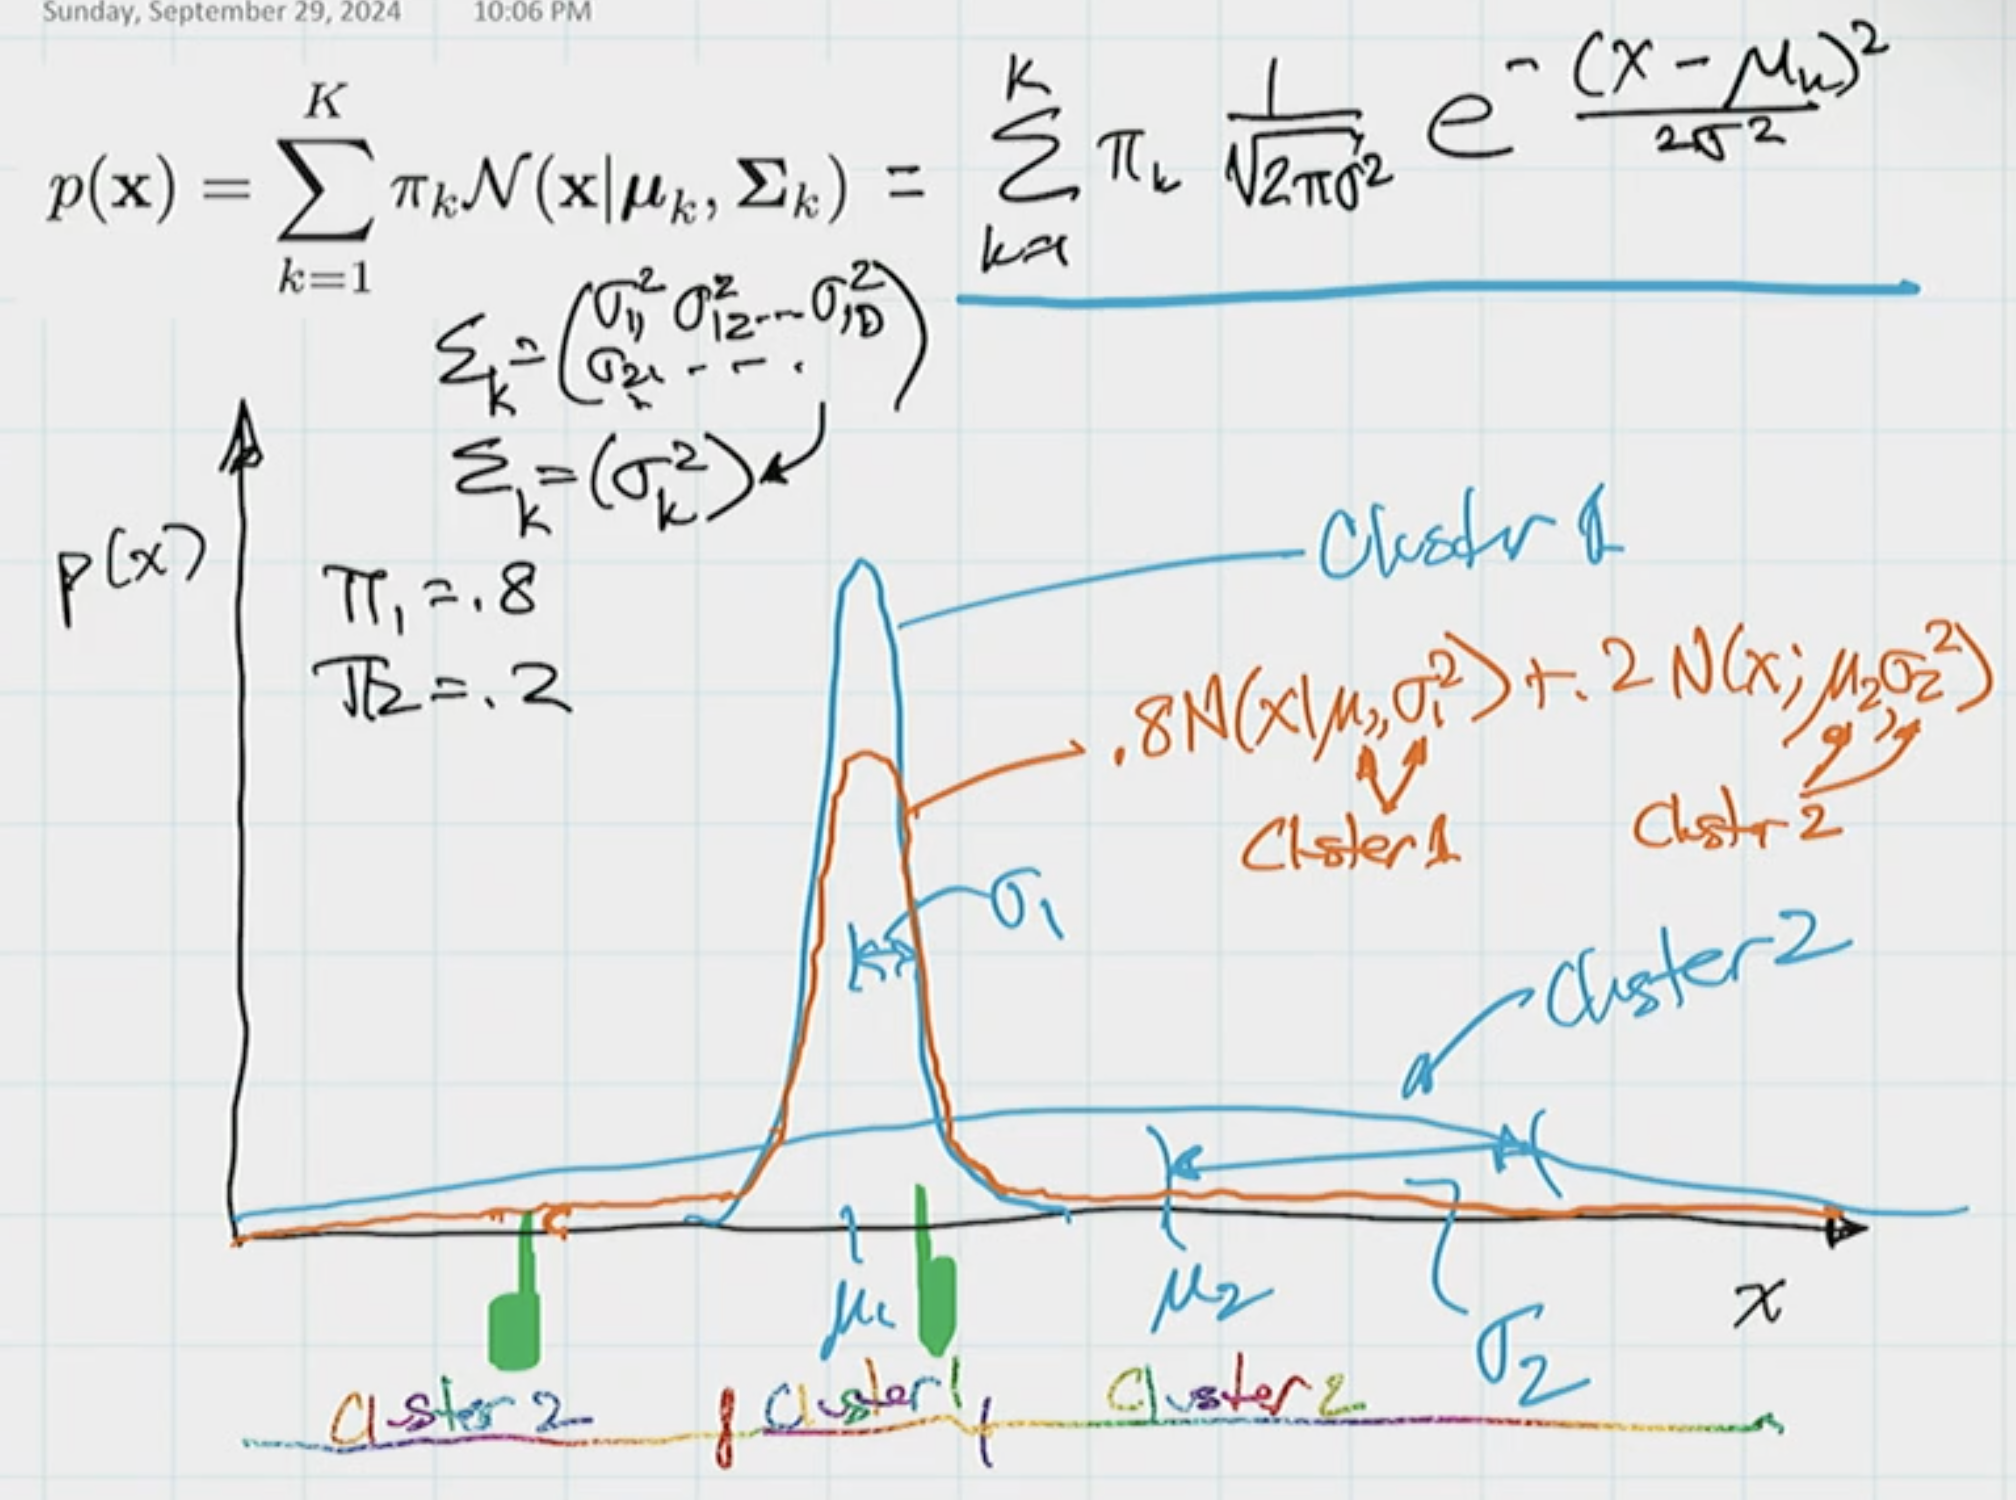 Sunday, September 29, 2024 10:06 PM
p(x) = \sum_{k=1}^{K} π_k N(x|μ_k, Σ_k) = \sum_{k=1}^{K} π_k \frac{1}{\sqrt{2πσ^2}} e^{-\frac{(x-μ_k)^2}{2σ^2}}
Σ_k = (σ_{11}^2 σ_{12}^2 ... σ_{1D}^2
σ_{21} - - - .)
Σ_k = (σ_k^2)
p(x)
π_1 = .8
π_2 = .2
Cluster 1
.8N(x|μ_1, σ_1^2) + .2 N(x; μ_2, σ_2^2)
Clster 1
Clustr 2
σ_1
Cluster 2
μ_1
μ_2
σ_2
x
Cluster 2
Cluster 1
Cluster 2